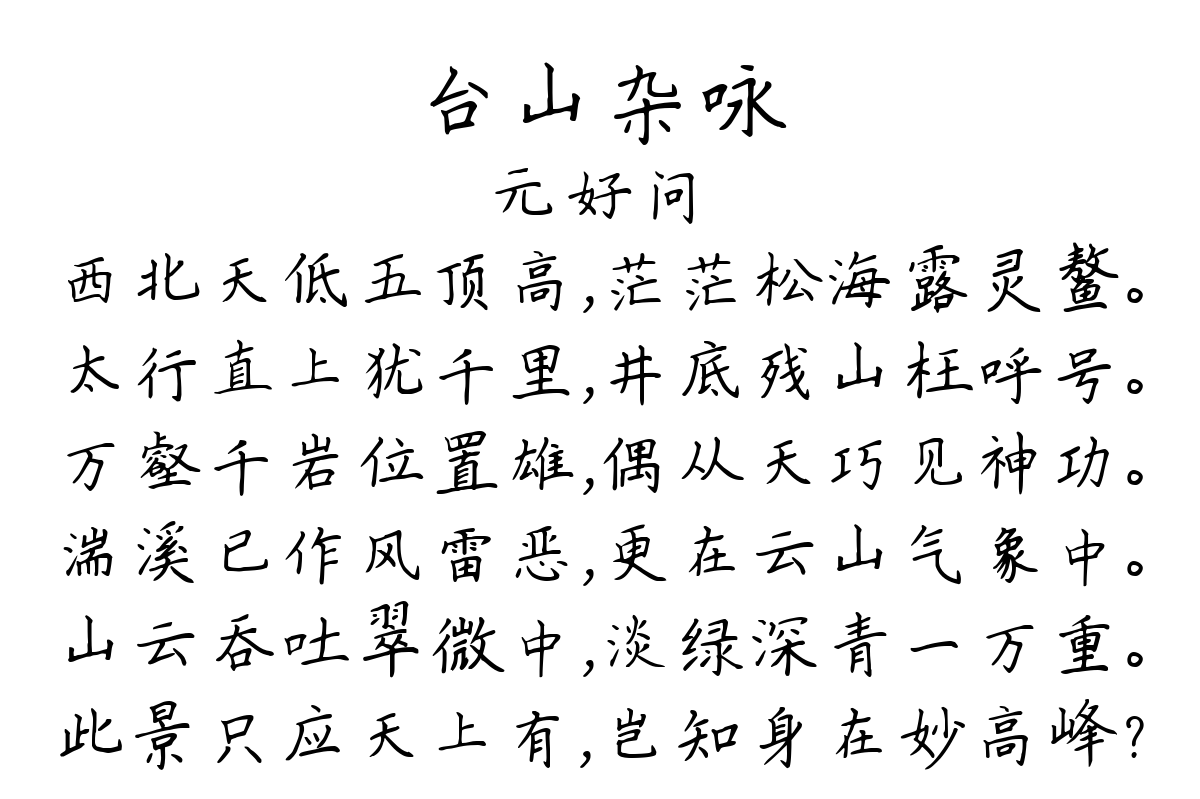 台山杂咏
元好问
西北天低五顶高,茫茫松海露灵鳌。
太行直上犹千里,井底残山枉呼号。
万壑千岩位置雄,偶从天巧见神功。
湍溪已作风雷恶,更在云山气象中。
山云吞吐翠微中,淡绿深青一万重。
此景只应天上有,岂知身在妙高峰?